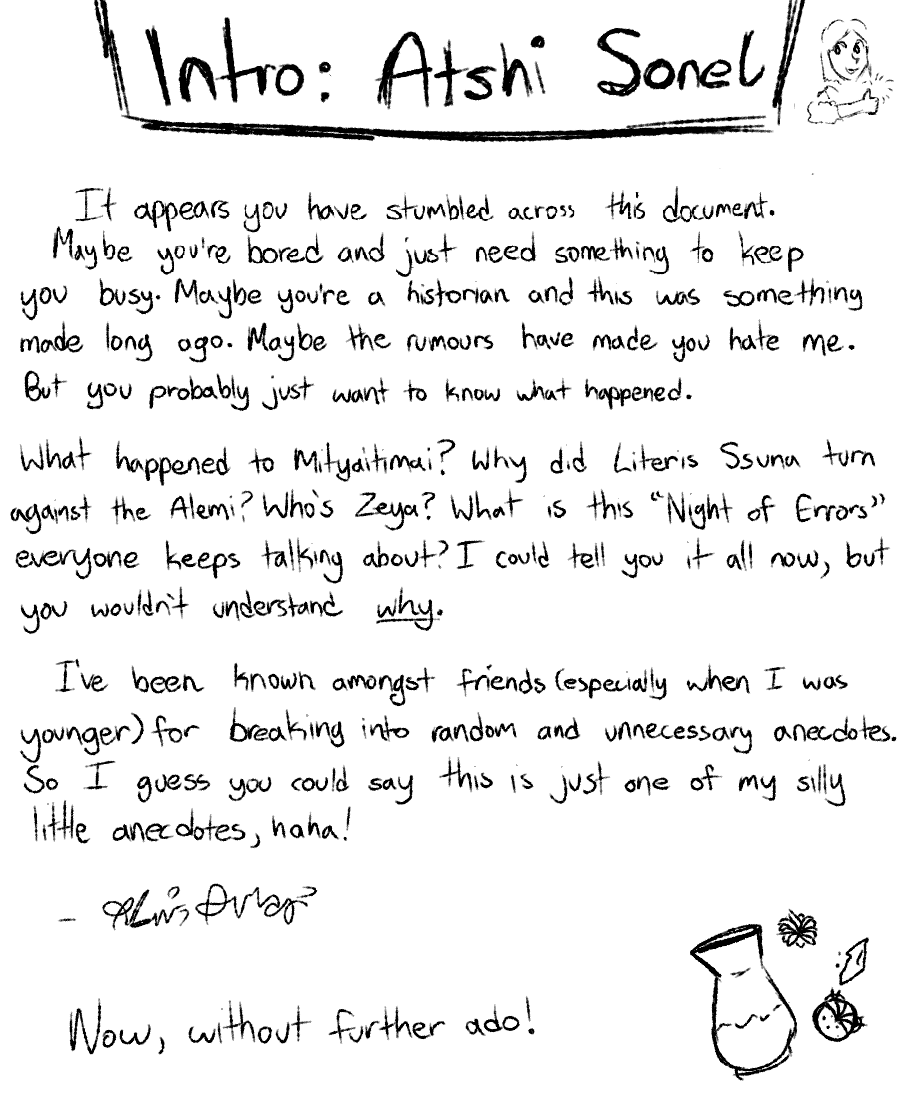 Intro: Atshi Sonel
It appears you have stumbled across this document.
Maybe you're bored and just need something to keep
you busy. Maybe you're a historian and this was something
made long ago. Maybe the rumours have made you hate me.
But you probably just want to know what happened.
What happened to Mityaitimai? Why did Literis Ssuna turn
against the Alemi? Who's Zeya? What is this "Night of Errors"
everyone keeps talking about? I could tell you it all now, but
you wouldn't understand why.
I've been known amongst friends (especially when I was
younger) for breaking into random and unnecessary anecdotes.
So I guess you could say this is just one of my silly
little anecdotes, haha!
Now, without further ado!